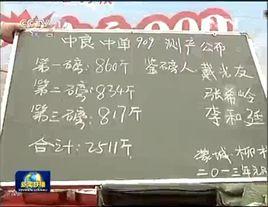 CCTV
中良中单909 测产公布
第一磅:860斤 鉴磅人 戴光友
第二磅:834斤 张希吟
第三磅:817斤 李和廷
合计:2511斤
二〇一三年
新闻联播